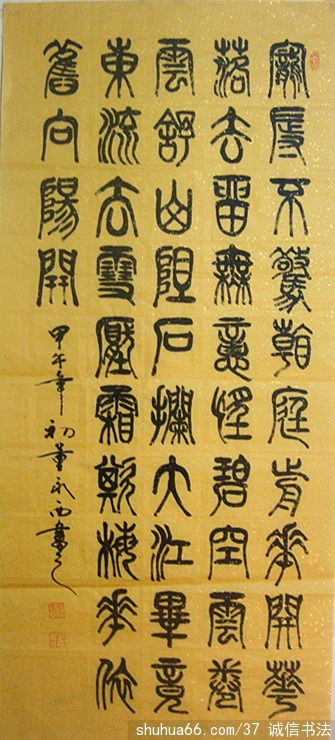 寵辱不驚朝庭前花開花
落去留無意望碧空雲卷
雲舒山阻石攔大江畢竟
東流去雪壓霜欺梅花依
舊向陽開
甲午年初董永西書之
shuhua66.com/37 诚信书法